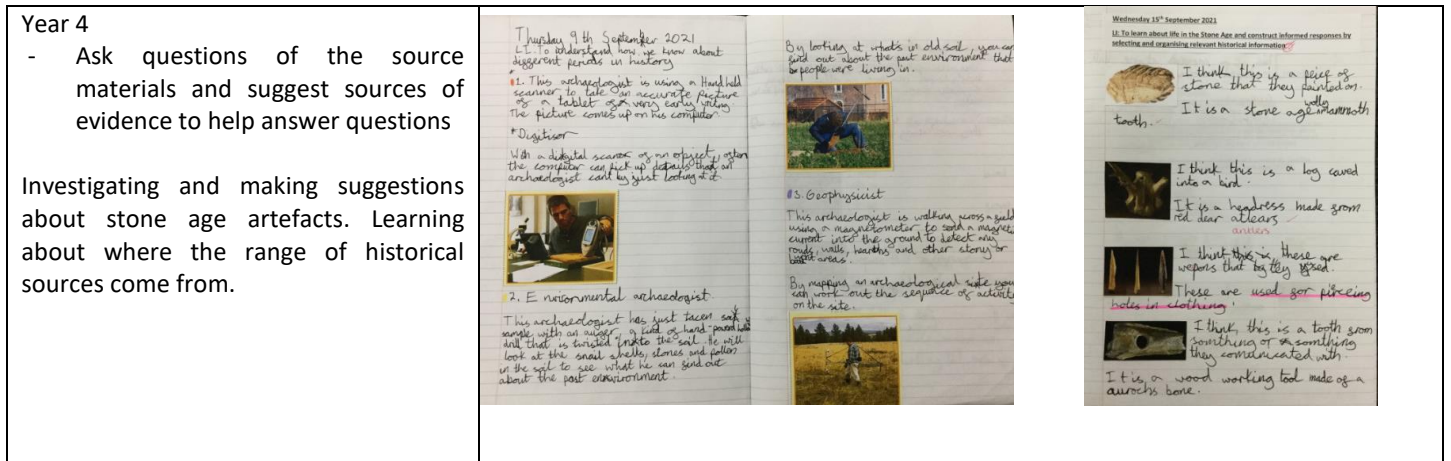 Year 4
- Ask questions of the source
materials and suggest sources of
evidence to help answer questions
Investigating and making suggestions
about stone age artefacts. Learning
about where the range of historical
sources come from.
Thursday 9th September 2021
LI: To understand how we know about
different periods in history
1. This archaeologist is using a Handheld
scanner to take an accurate picture
of a tablet of very early writing
The picture comes up on his computer.
*Digitisor
With a didgital scaner of an object, often
the computer can pick up details that an
archaeologist cant by just looking at it.
2. Environmental archaeologist.
This archaeologist has just tacen soil
sample with an auger, a kind of hand-powered
drill that is twisted into the soil. He will
look at the snail shells, stones and pollen
in the soil to see what he can find out
about the past environment.
By looking at what's in old soil, you can
find out about the past environment that
people were living in.
3. Geophysicist
This archaeologist is walking across a field
using a magnetometer to send a magnetic
current into the ground to detect any
roads, walls, hearths and other stony or
burnt areas.
By mapping an archaeological site you
can work out the sequence of activity
on the site.
Wednesday 15th September 2021
LI: To learn about life in the Stone Age and construct informed responses by
selecting and organising relevant historical information
I think, this is a peice of
stone that they painted on.
It is a stone age wolly mammoth
tooth.
I think this is a log caved
into a bird.
It is a headress made from
red dear atlears
antlers
I think this is, these are
wepons that they used.
These are used for pirceing
holes in clothing.
I think, this is a tooth from
somthing or somthing
they comunicated with.
It is, a wood working tool made of a
aurochs bone.